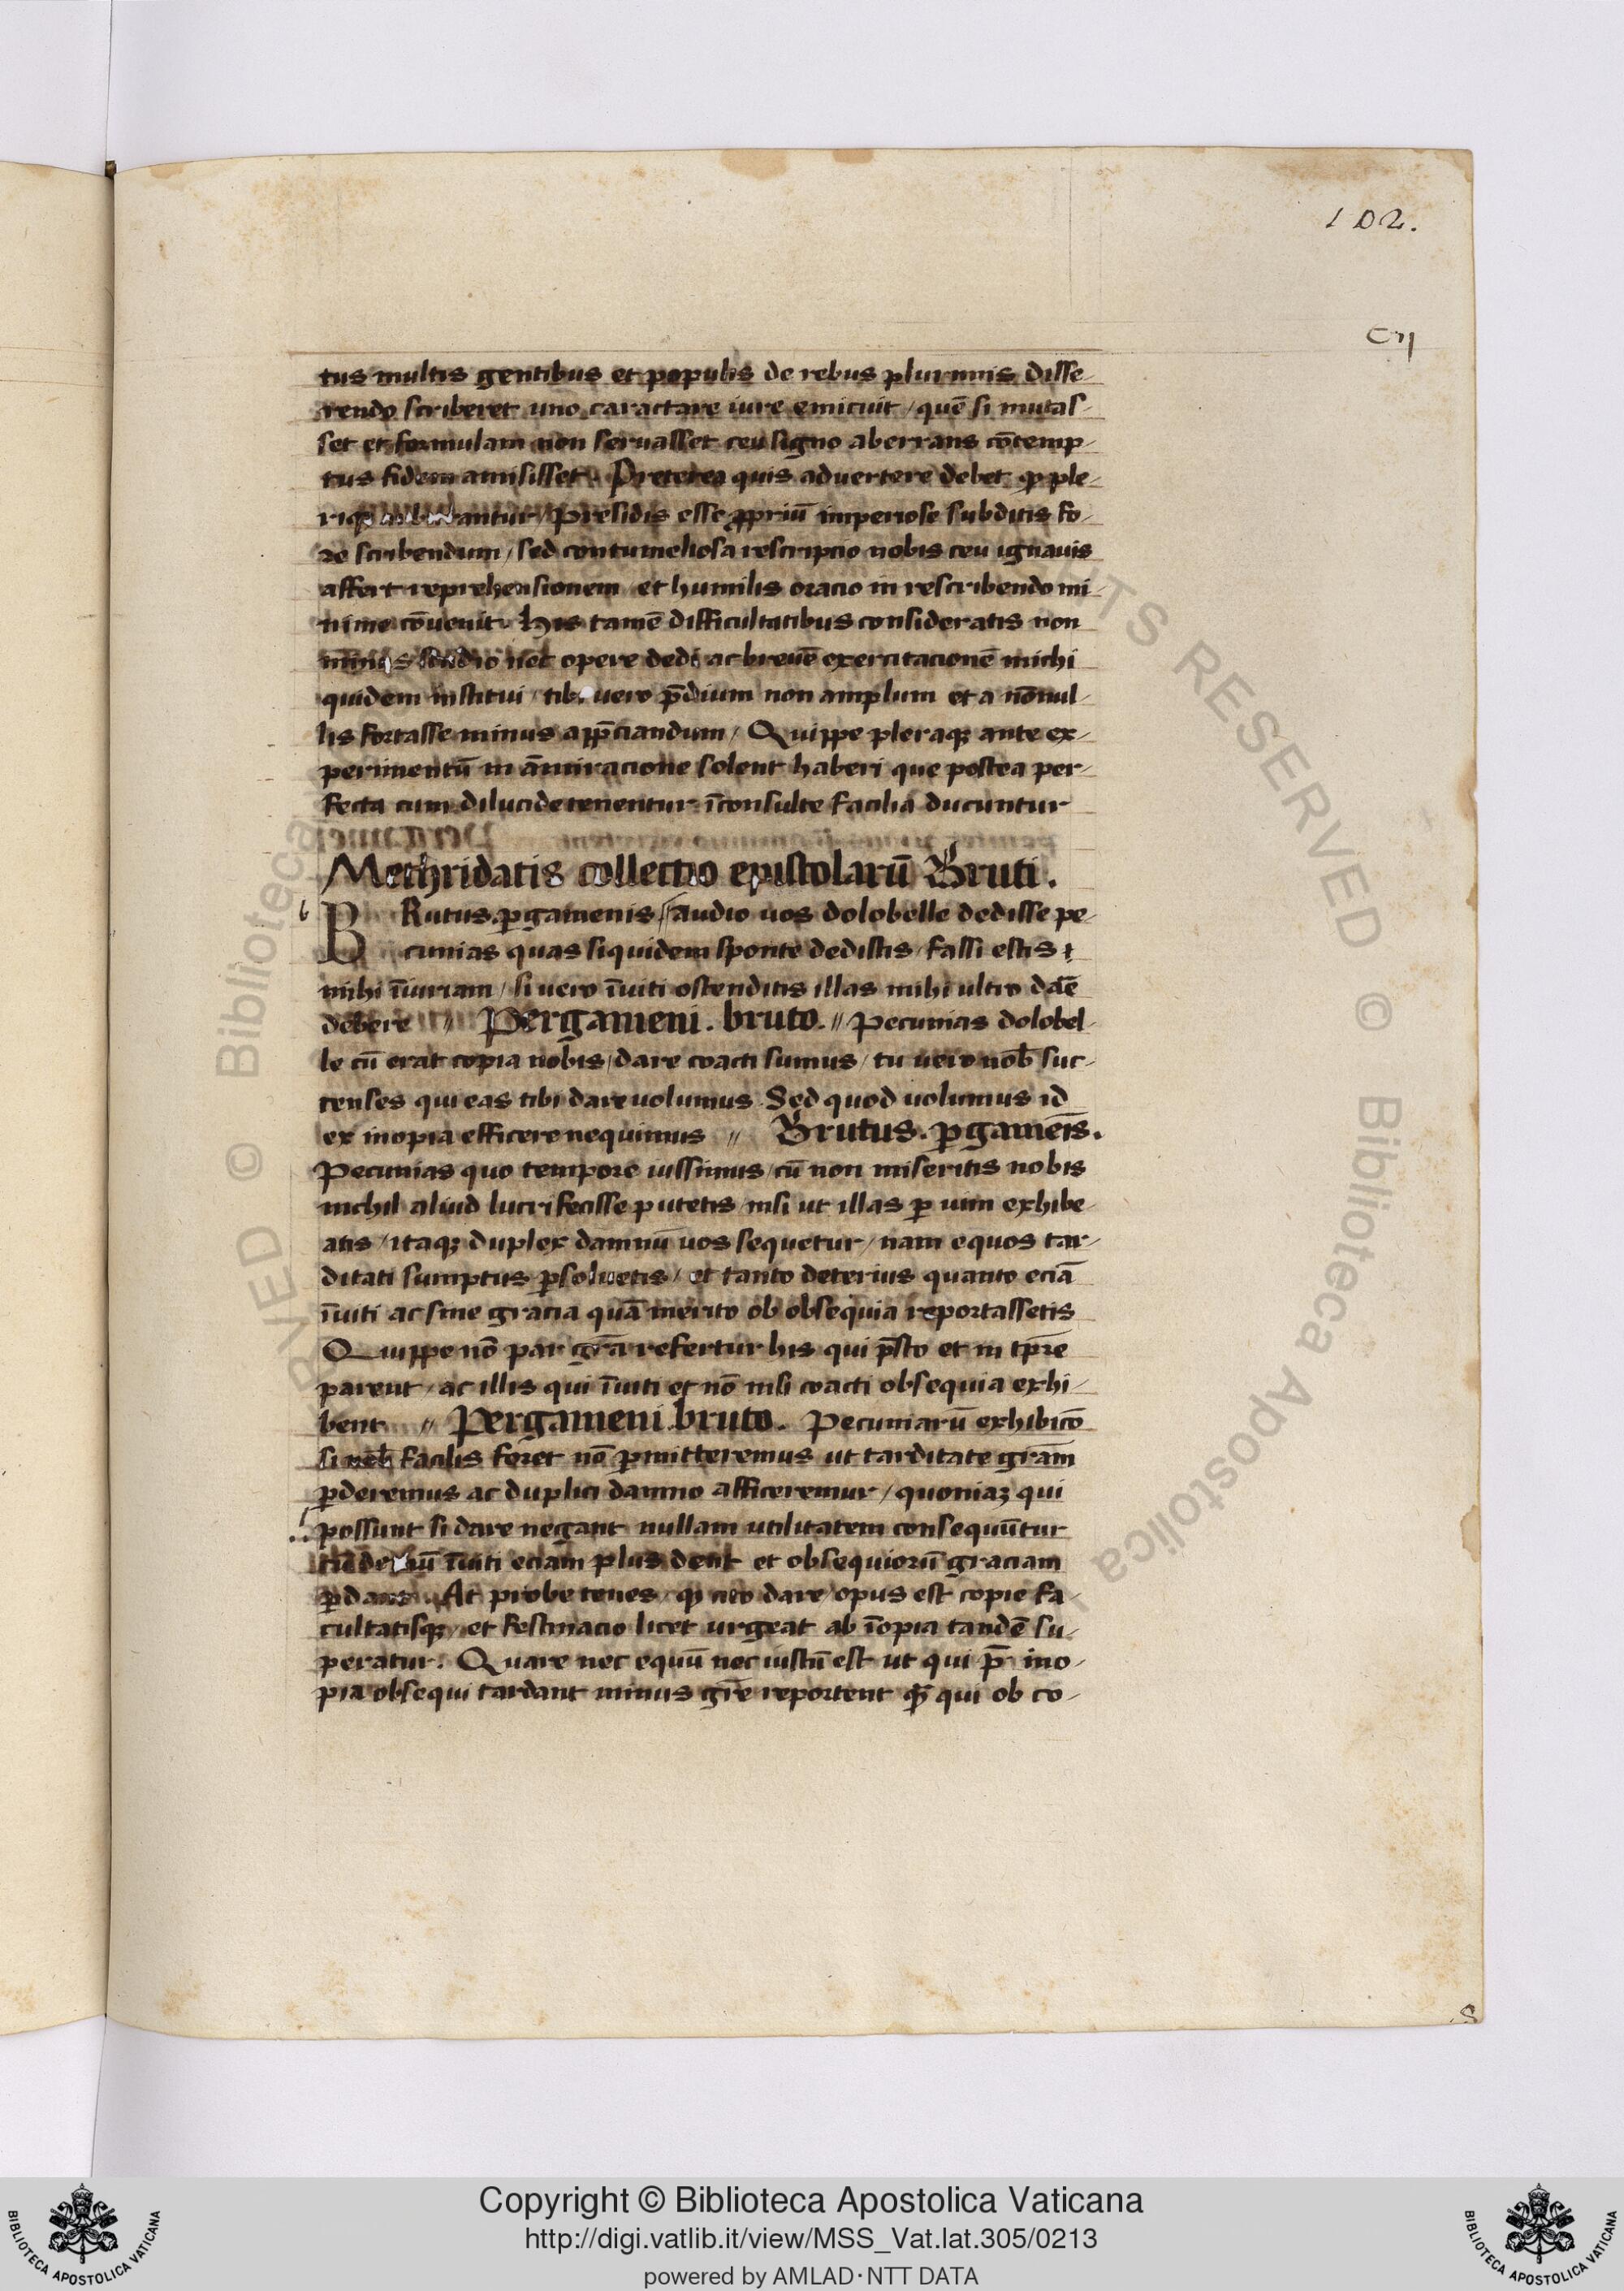 102.
cij
tus multis gentibus et populis de rebus plurimis disse-
rendo scriberet uno caractare iure emicuit / quē si mutas-
set et formulam non seruasset ceu signo aberrans cōtemp-
tus fidem amisisset. Preterea quis aduertere debet ꝙ ple-
antur / presidis esse ꝓpriū imperiose subditis fo-
re scribendum / sed contumeliosa rescripcio nobis ceu ignauis
affert reprehensionem / et humilis oracio in rescribendo mi-
nime cōuenit. His tamē difficultatibus consideratis non
minus studio nec opere dedi ac breuē exercitacionē michi
quidem institui / tibi uero p̄dium non amplum et a nōnul-
lis fortasse minus app̄ciandum / Quippe pleraqꝫ ante ex-
perimentū in āmiracione solent haberi que postea per-
fecta cum dilucide tenentur īconsulte facilia ducuntur
Methridatis collectio epistolarū Bruti.
b
BRutus ꝑgamenis / audio uos dolobelle dedisse pe-
cunias quas siquidem sponte dedistis / fassi estis
mihi īiuriam / si uero īuiti ostenditis illas mihi ultro daē
debere // Pergameni. bruto. // Pecunias dolobel-
le cū erat copia nobis / dare coacti sumus / tu uero nob̄ suc-
censes qui eas tibi dare uolumus. Sed quod uolumus id
ex inopia efficere nequimus // Brutus. ꝑgameīs.
Pecunias quo tempore iussimus / cū non miseritis nobis
nichil aliud lucrifecisse putetis / nisi ut illas ꝑ uim exhibe-
atis / itaqꝫ duplex damnū uos sequetur / nam equos tar-
ditati sumptus ꝑsoluetis / et tanto deterius quanto eciā
īuiti ac sine gracia quā merito ob obsequia reportassetis
Quippe nō par gr̄a refertur his qui p̄sto et in tp̄re
parent / ac illis qui īuiti et nō nisi coacti obsequia exhi-
bent // Pergameni bruto. Pecuniarū exhibicō
si nob̄ facilis foret nō ꝑmitteremus ut tarditate gr̄am
ꝑderemus ac duplici damno afficeremur / quoniaꝫ qui
possunt si dare negant nullam utilitatem consequūtur
īuiti eciam plus dent et obsequiorū graciam
ꝑdant. At probe tenes / ꝙ cito dare opus est copie fa-
cultatisqꝫ / et festinacio licet urgeat ab īopia tandē su-
peratur. Quare nec equū nec iustū est ut qui p̄ ino-
pia obsequi tardant minus gr̄e reportent qꝫ̄ qui ob co-
S
Copyright © Biblioteca Apostolica Vaticana
http://digi.vatlib.it/view/MSS_Vat.lat.305/0213
powered by AMLAD·NTT DATA
BIBLIOTECA APOSTOLICA VATICANA
BIBLIOTECA APOSTOLICA VATICANA